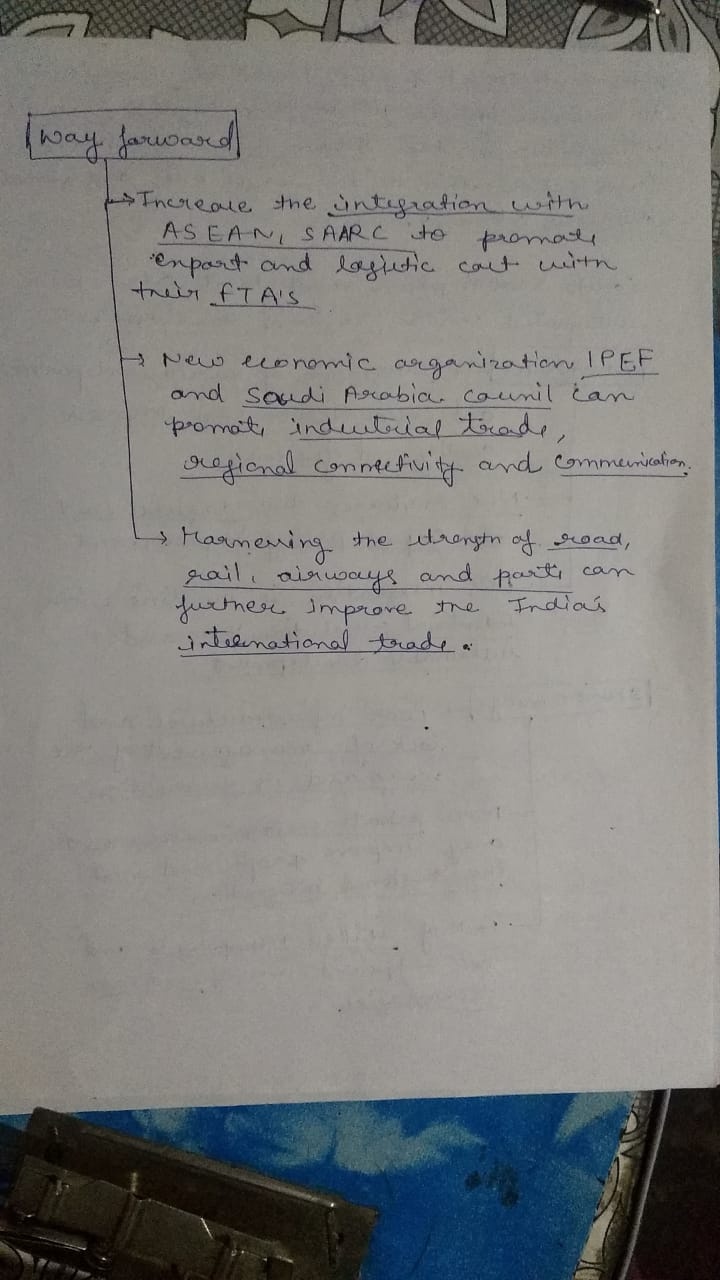 Way forward
→ Increase the integration with
ASEAN, SAARC to promote
export and logistic cost with
their FTA's
→ New economic organization IPEF
and Saudi Arabia council can
promote industrial trade,
regional connectivity and communication.
→ Harnessing the strength of road,
rail, airways and ports can
further improve the India's
international trade.